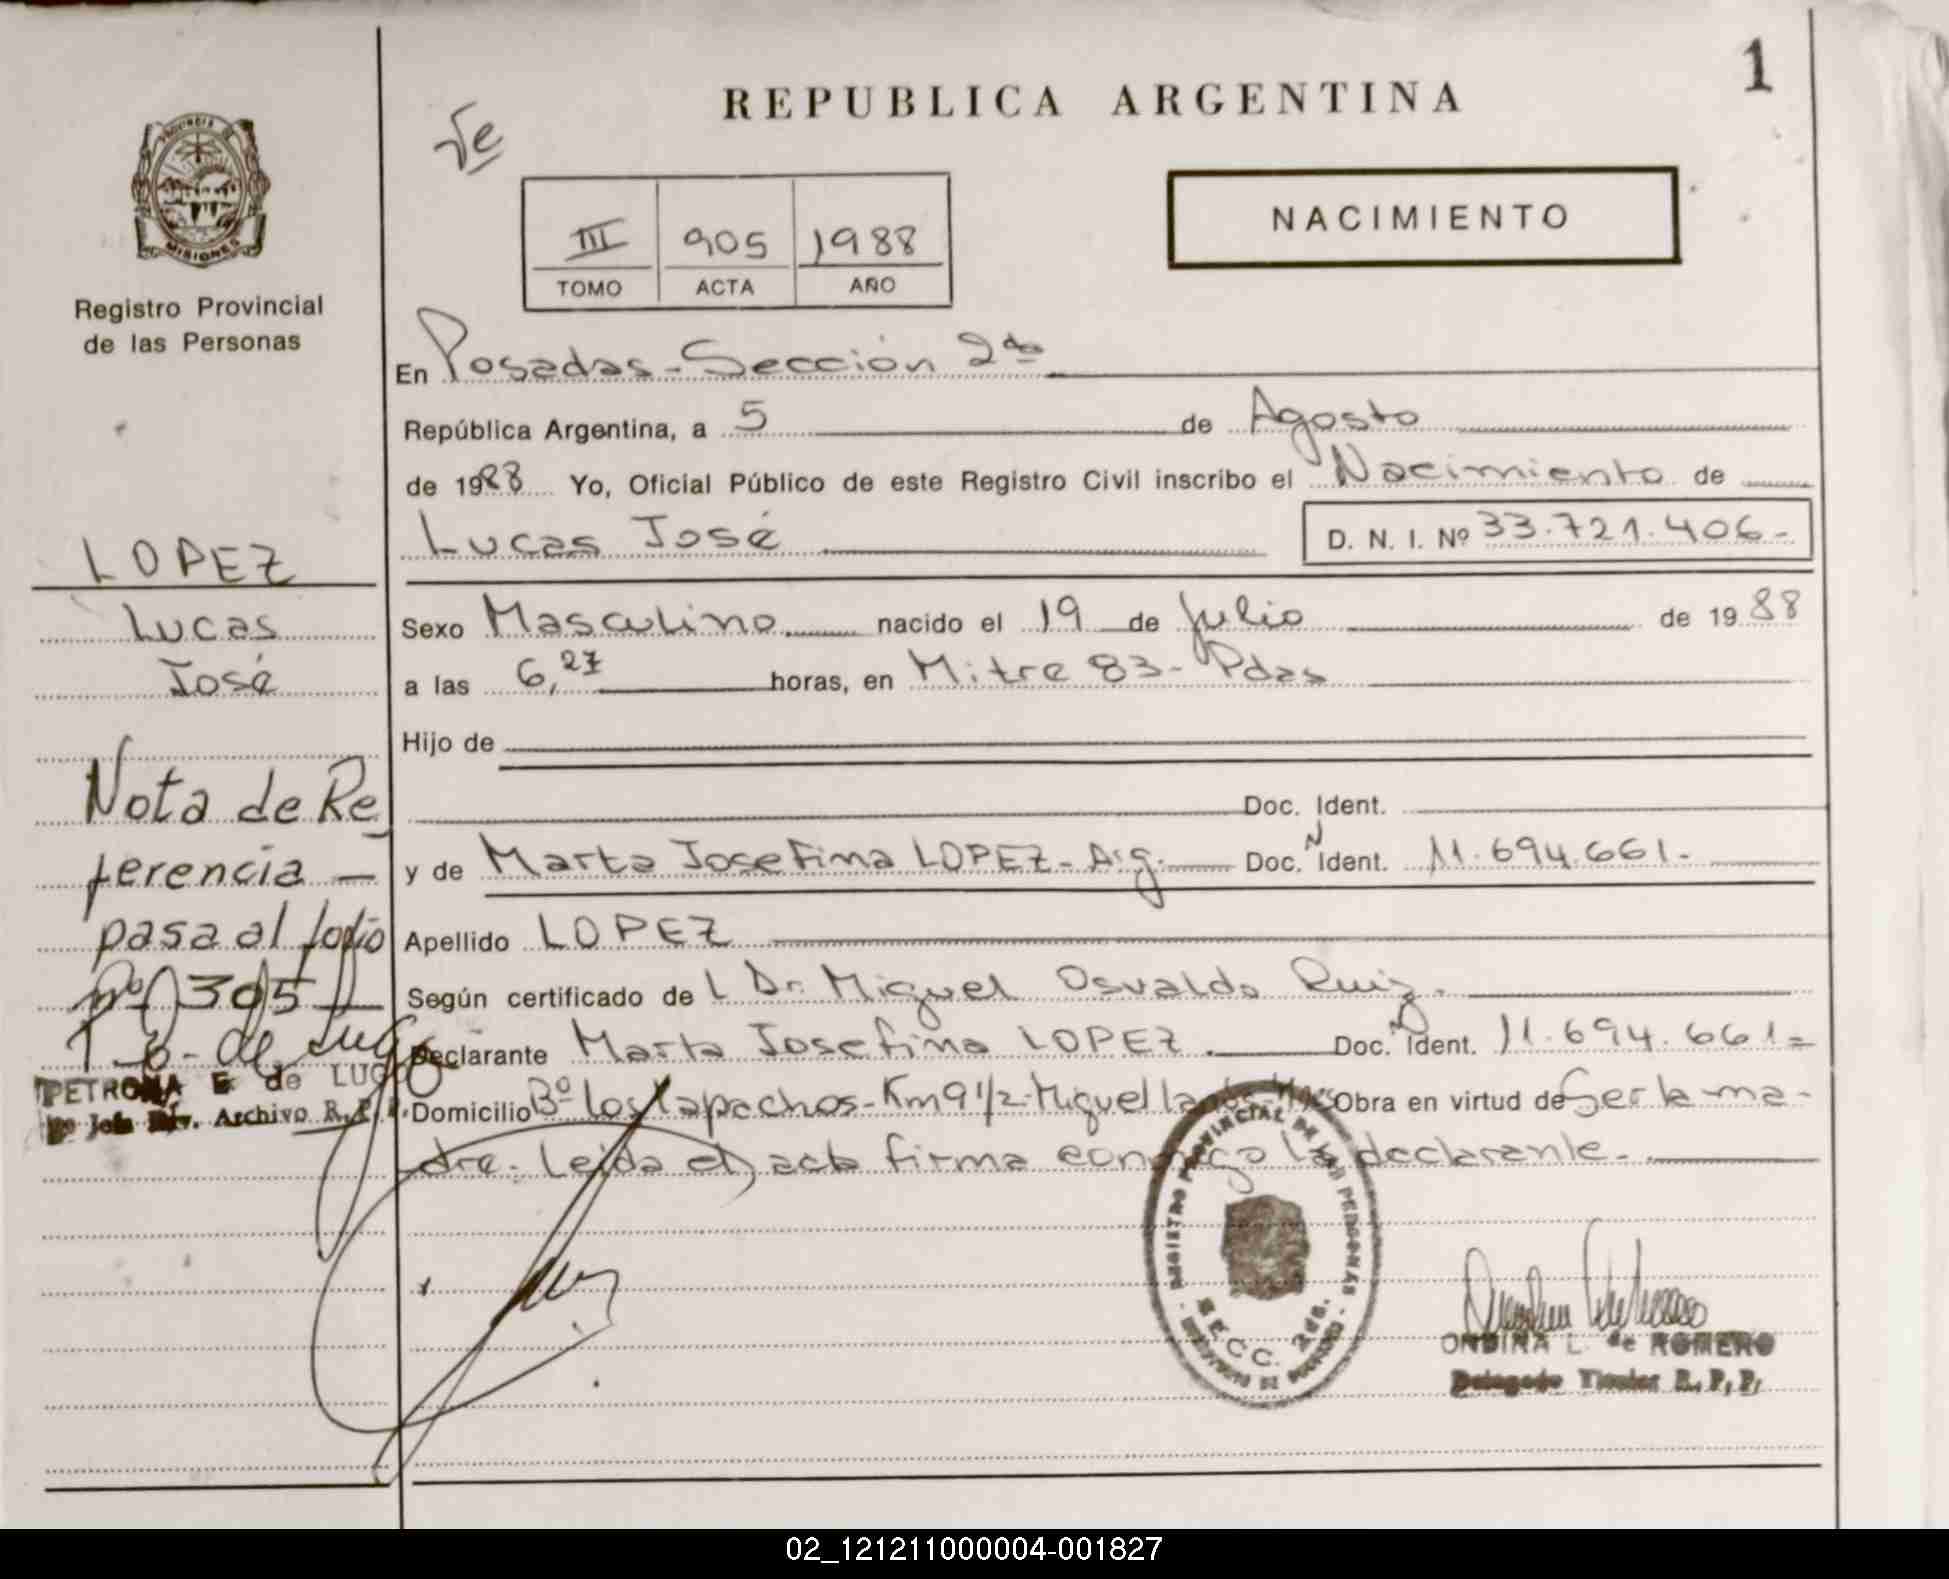 1
REPUBLICA ARGENTINA
PROVINCIA DE
MISIONES
Registro Provincial
de las Personas
NACIMIENTO
III 905 1988
TOMO ACTA AÑO
En Posadas - Sección 2da
República Argentina, a 5 de Agosto
de 1988 Yo, Oficial Público de este Registro Civil inscribo el Nacimiento de
Lucas José D. N. I. Nº 33.721.406-
LOPEZ
Lucas
José
Sexo Masculino nacido el 19 de Julio de 1988
a las 6,27 horas, en Mitre 83 - Pdas
Hijo de
Doc. Ident.
y de Marta Josefina LOPEZ - Arg. Doc. N Ident. 11.694.661-
Apellido LOPEZ
Según certificado de L Dr. Miguel Osvaldo Ruiz.
Declarante Marta Josefina LOPEZ Doc. N Ident. 11.694.661=
Domicilio Bº los Lapachos - Km 9 1/2 - Miguel Lanús - Mnes Obra en virtud de Ser la ma-
dre. Leída el acta firma conmigo la declarante.
Nota de Re
ferencia —
pasa al folio
nº 305
de Lugo
PETRONA E. de LUGO
Jefa Div. Archivo R. P. P.
REGISTRO PROVINCIAL DE LAS PERSONAS
SECC. 2da.
ONDINA L. de ROMERO
Delegado Titular R. P. P.
02_121211000004-001827